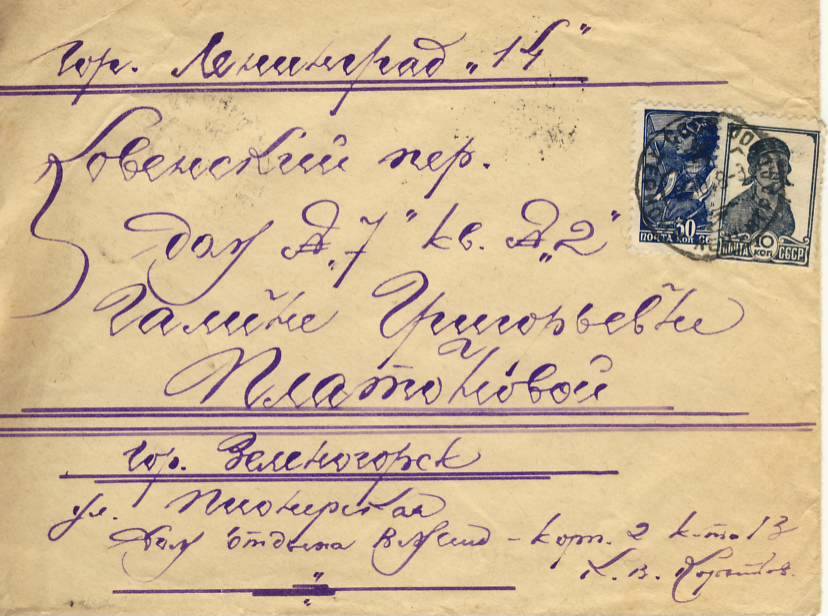 Гор. Ленинград „14"
Ковенский пер.
дом № „7" кв. № „2"
Галине Григорьевне
Платоновой
гор. Зеленогорск
ул. Пионерская
Дом отдыха - корп. 2 к-та 13
К. В.
50
ПОЧТА КОП
10
ПОЧТА КОП СССР